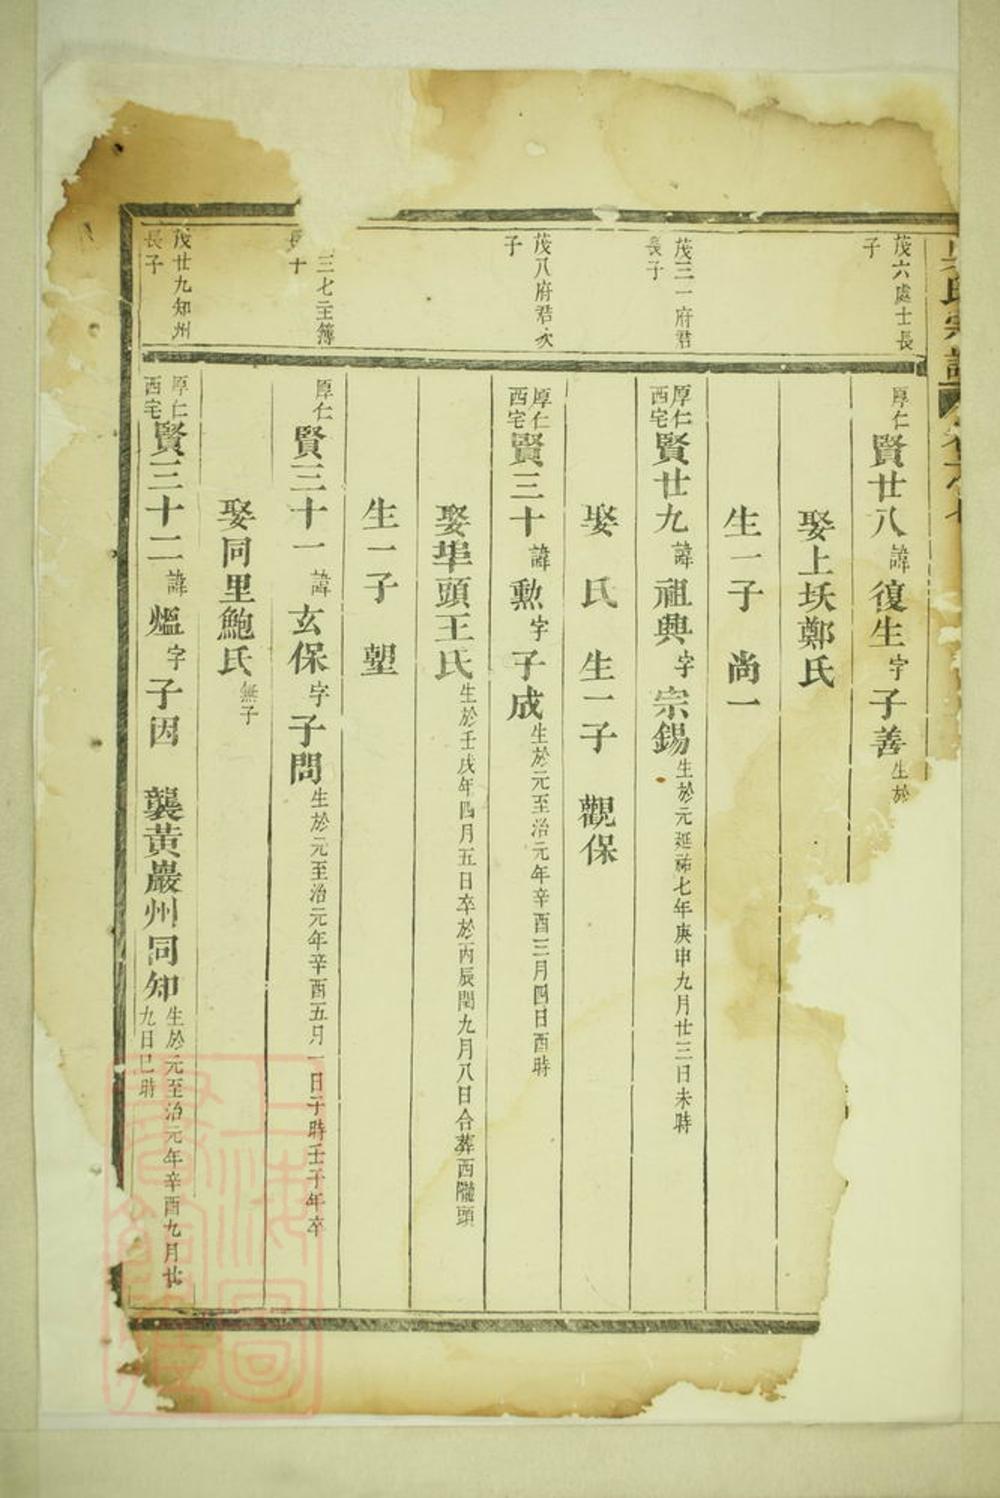 氏宗譜
茂六處士長
子
厚仁
賢廿八諱復生字子善生於
娶上坎鄭氏
生一子尚一
茂三一府君
長子
厚仁
西宅
賢廿九諱祖興字宗錫生於元延祐七年庚申九月廿三日未時
娶 氏 生一子 觀保
茂八府君次
子
厚仁
西宅
賢三十諱勲字子成生於元至治元年辛酉三月四日酉時
娶垏頭王氏生於壬戌年四月五日卒於丙辰閏九月八日合葬西隴頭
生一子 堲
三七主簿
長子
厚仁
賢三十一諱玄保字子問生於元至治元年辛酉五月一日子時壬子年卒
娶同里鮑氏無子
茂廿九知州
長子
厚仁
西宅
賢三十二諱熅字子因 襲黃巖州同知生於元至治元年辛酉九月廿
九日巳時
上海圖
書館藏